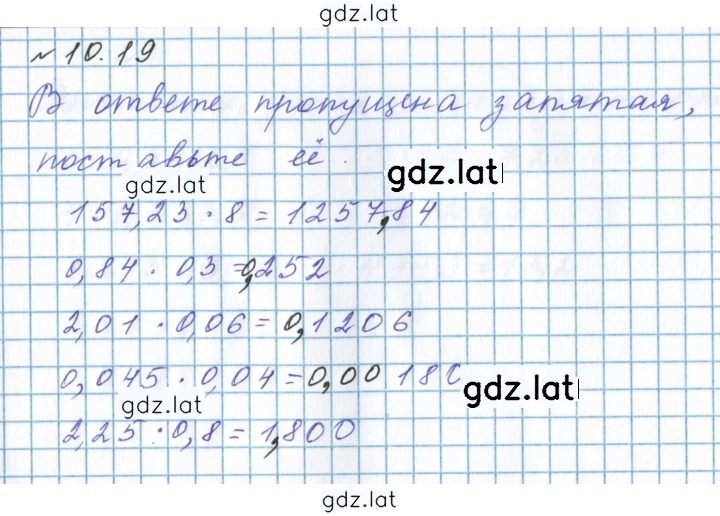 gdz.lat
№ 10.19
В ответе пропущена запятая,
поставьте её.
gdz.lat
gdz.lat
157,23 · 8 = 1257,84
0,84 · 0,3 = 0,252
2,01 · 0,06 = 0,1206
0,045 · 0,04 = 0,00180
gdz.lat
gdz.lat
2,25 · 0,8 = 1,800
gdz.lat